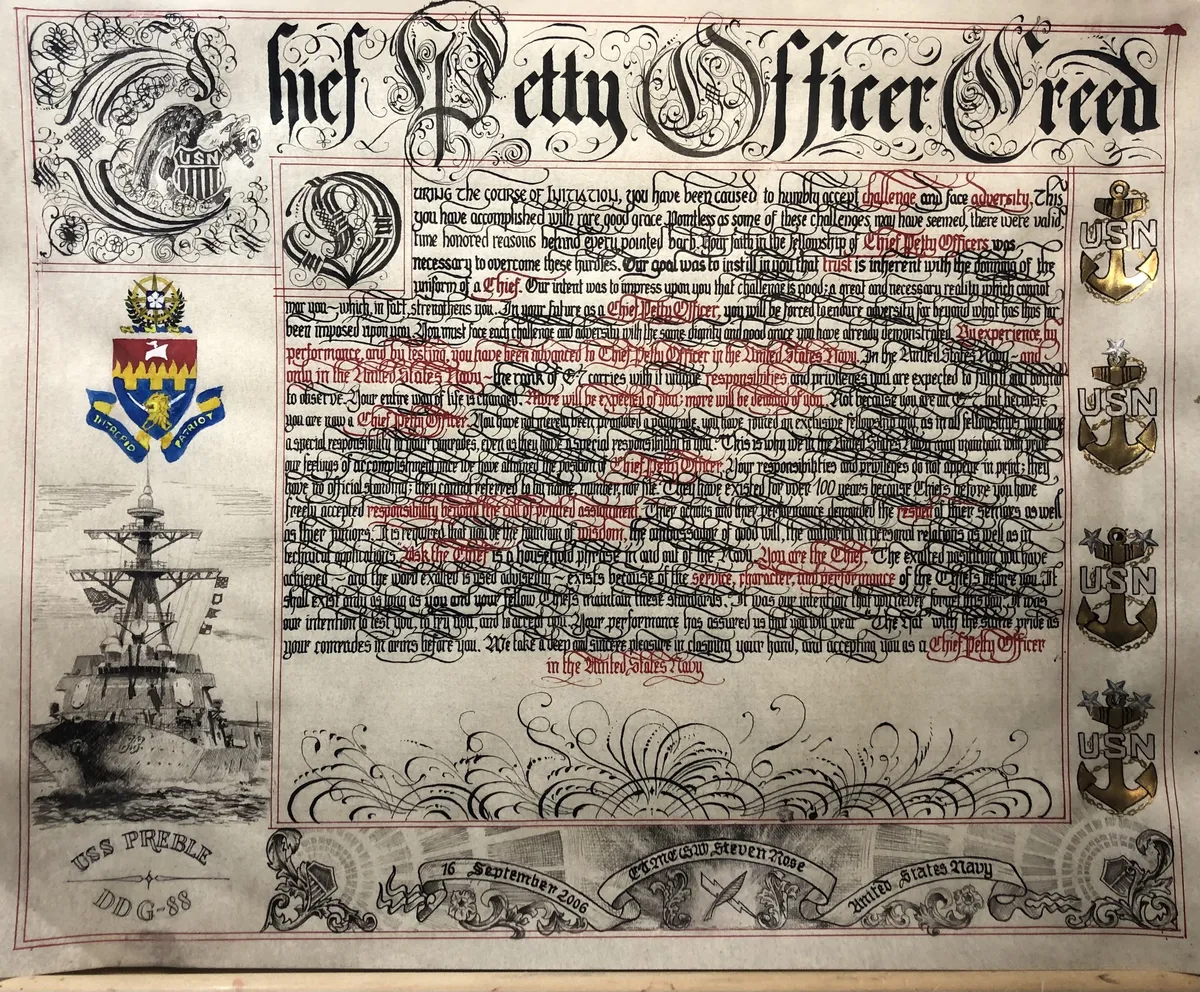 Chief Petty Officer Creed
USN
During the course of Initiation, you have been caused to humbly accept challenge and face adversity. This
you have accomplished with rare good grace. Pointless as some of these challenges may have seemed, there were valid,
time honored reasons behind every pointed barb. Your faith in the fellowship of Chief Petty Officers was
necessary to overcome these hurdles. Our goal was to instill in you that trust is inherent with the donning of the
uniform of a Chief. Our intent was to impress upon you that challenge is good; a great and necessary reality which cannot
mar you – which, in fact, strengthens you. In your future as a Chief Petty Officer, you will be forced to endure adversity far beyond what has thus far
been imposed upon you. You must face each challenge and adversity with the same dignity and good grace you have already demonstrated. By experience, by
performance, and by testing, you have been advanced to Chief Petty Officer in the United States Navy. In the United States Navy – and
only in the United States Navy – the rank of E7 carries with it unique responsibilities and privileges you are expected to fulfill and bound
to observe. Your entire way of life is changed. More will be expected of you; more will be demanded of you. Not because you are an E7 but because
you are now a Chief Petty Officer. You have not merely been promoted a paygrade, you have joined an exclusive fellowship and, as in all fellowships, you have
a special responsibility to your comrades, even as they have a special responsibility to you. This is why we in the United States Navy may maintain with pride
our feelings of accomplishment once we have attained the position of Chief Petty Officer. Your responsibilities and privileges do not appear in print; they
have no official standing; they cannot referred to by name, number, nor file. They have existed for over 100 years because Chiefs before you have
freely accepted responsibility beyond the call of printed assignment. Their actions and their performance demanded the respect of their seniors as well
as their juniors. It is required that you be the fountain of wisdom, the ambassador of good will, in personal relations as well as in
technical applications. "Ask the Chief" is a household phrase in and out of the Navy. You are the Chief. The exalted position you have
achieved – and the word exalted is used advisedly – exists because of the service, character, and performance of the Chiefs before you. It
shall exist only as long as you and your fellow Chiefs maintain these standards. It was our intention that you never forget this day. It was
our intention to test you, to try you, and to accept you. Your performance has assured us that you will wear "The Hat" with the same pride as
your comrades in arms before you. We take a deep and sincere pleasure in clasping your hand, and accepting you as a Chief Petty Officer
in the United States Navy
USN
USN
USN
USN
INTREPID PATRIOT
88
USS PREBLE
DDG-88
16 September 2006
Steven Rose
United States Navy